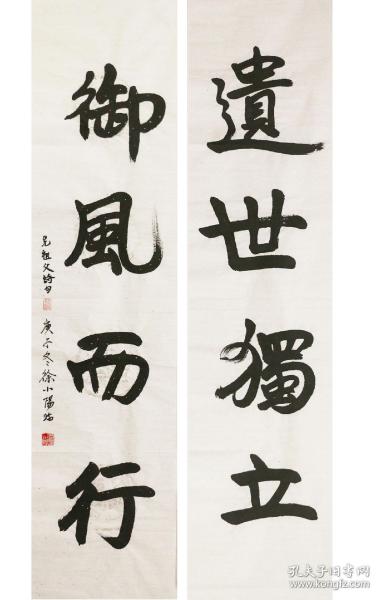 遺世獨立
御風而行
庚子冬徐小陽
孔夫子旧书网
kongfz.com